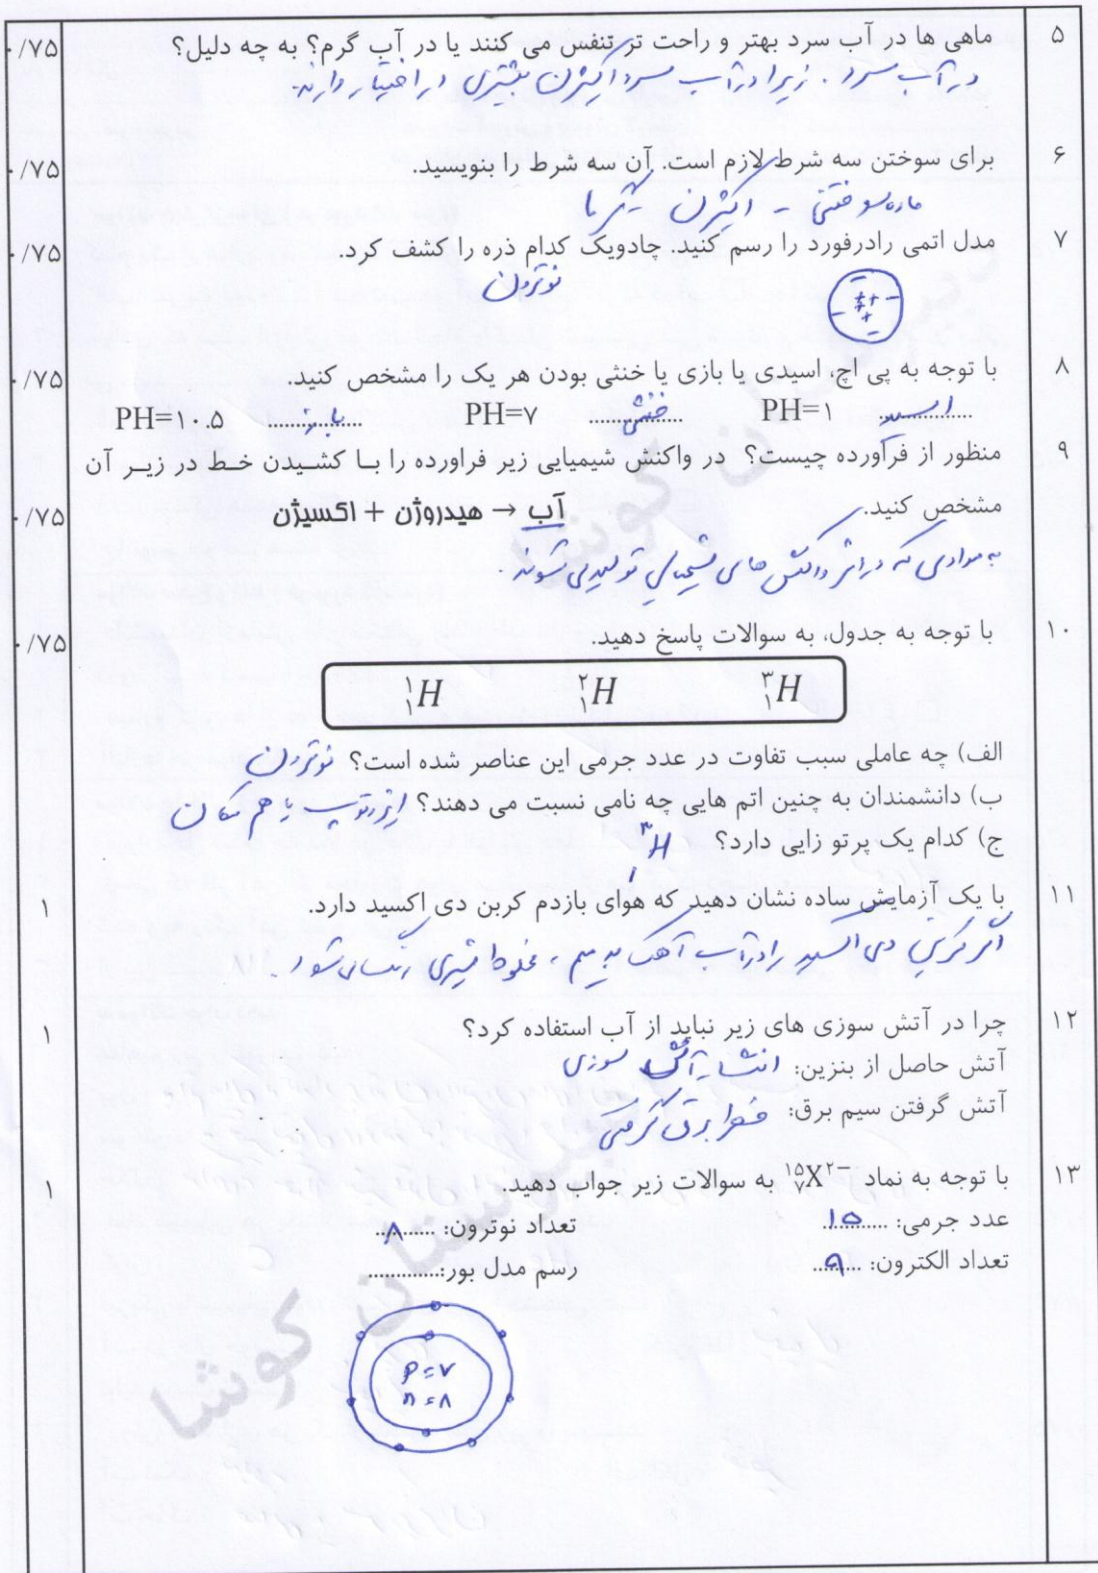 ۵ ماهی ها در آب سرد بهتر و راحت تر تنفس می کنند یا در آب گرم؟ به چه دلیل؟ ۰/۷۵
در آب سرد. زیرا در آب سرد اکسیژن بیشتری در اختیار دارند.
۶ برای سوختن سه شرط لازم است. آن سه شرط را بنویسید. ۰/۷۵
ماده سوختنی - اکسیژن - گرما
۷ مدل اتمی رادرفورد را رسم کنید. چادویک کدام ذره را کشف کرد. ۰/۷۵
نوترون
۸ با توجه به پی اچ، اسیدی یا بازی یا خنثی بودن هر یک را مشخص کنید. ۰/۷۵
PH=۱ اسید PH=۷ خنثی PH=۱۰.۵ باز
۹ منظور از فرآورده چیست؟ در واکنش شیمیایی زیر فراورده را با کشیدن خط در زیر آن
مشخص کنید. آب → هیدروژن + اکسیژن ۰/۷۵
به موادی که در اثر واکنش های شیمیایی تولید می شوند.
۱۰ با توجه به جدول، به سوالات پاسخ دهید. ۰/۷۵
¹₁H ²₁H ³₁H
الف) چه عاملی سبب تفاوت در عدد جرمی این عناصر شده است؟ نوترون
ب) دانشمندان به چنین اتم هایی چه نامی نسبت می دهند؟ ایزوتوپ یا هم مکان
ج) کدام یک پرتو زایی دارد؟ ³₁H
۱۱ با یک آزمایش ساده نشان دهید که هوای بازدم کربن دی اکسید دارد. ۱
اگر کربن دی اکسید را در آب آهک بدمیم، مخلوط شیری رنگ می شود.
۱۲ چرا در آتش سوزی های زیر نباید از آب استفاده کرد؟ ۱
آتش حاصل از بنزین: انتشار آتش سوزی
آتش گرفتن سیم برق: خطر برق گرفتگی
۱۳ با توجه به نماد ¹⁵₇X²⁻ به سوالات زیر جواب دهید. ۱
عدد جرمی: ۱۵ تعداد نوترون: ۸
تعداد الکترون: ۹ رسم مدل بور:.............
p=۷
n=۸
کوشا